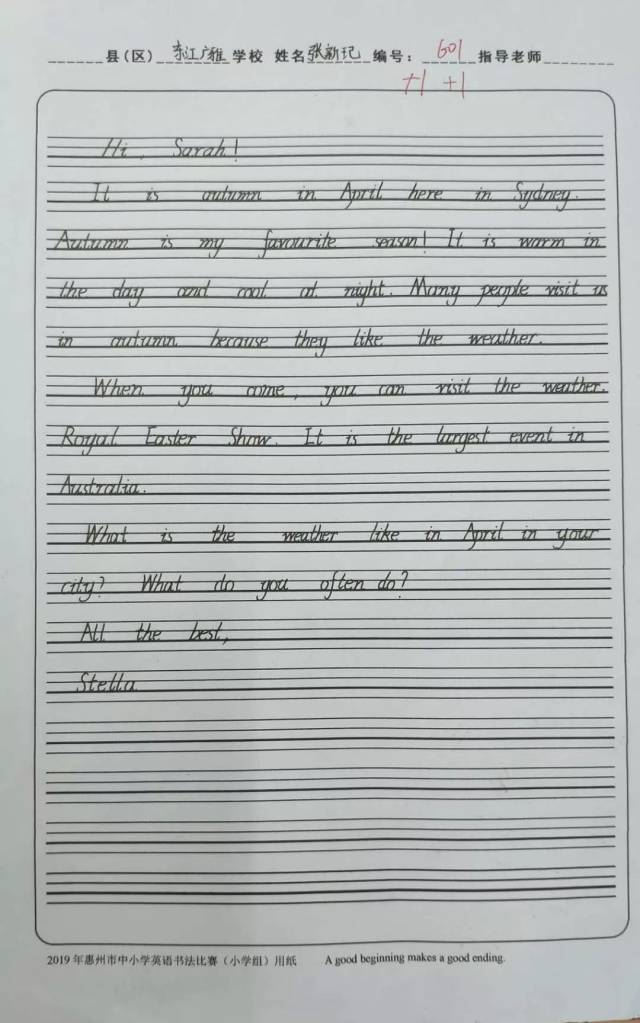 ______县(区) 东江广雅 学校 姓名 张新玘 编号: 601 指导老师________
+1 +1
Hi, Sarah!
It is autumn in April here in Sydney.
Autumn is my favourite season! It is warm in
the day and cool at night. Many people visit us
in autumn because they like the weather.
When you come, you can visit the weather.
Royal Easter Show. It is the largest event in
Australia.
What is the weather like in April in your
city? What do you often do?
All the best,
Stella
2019 年惠州市中小学英语书法比赛（小学组）用纸 A good beginning makes a good ending.